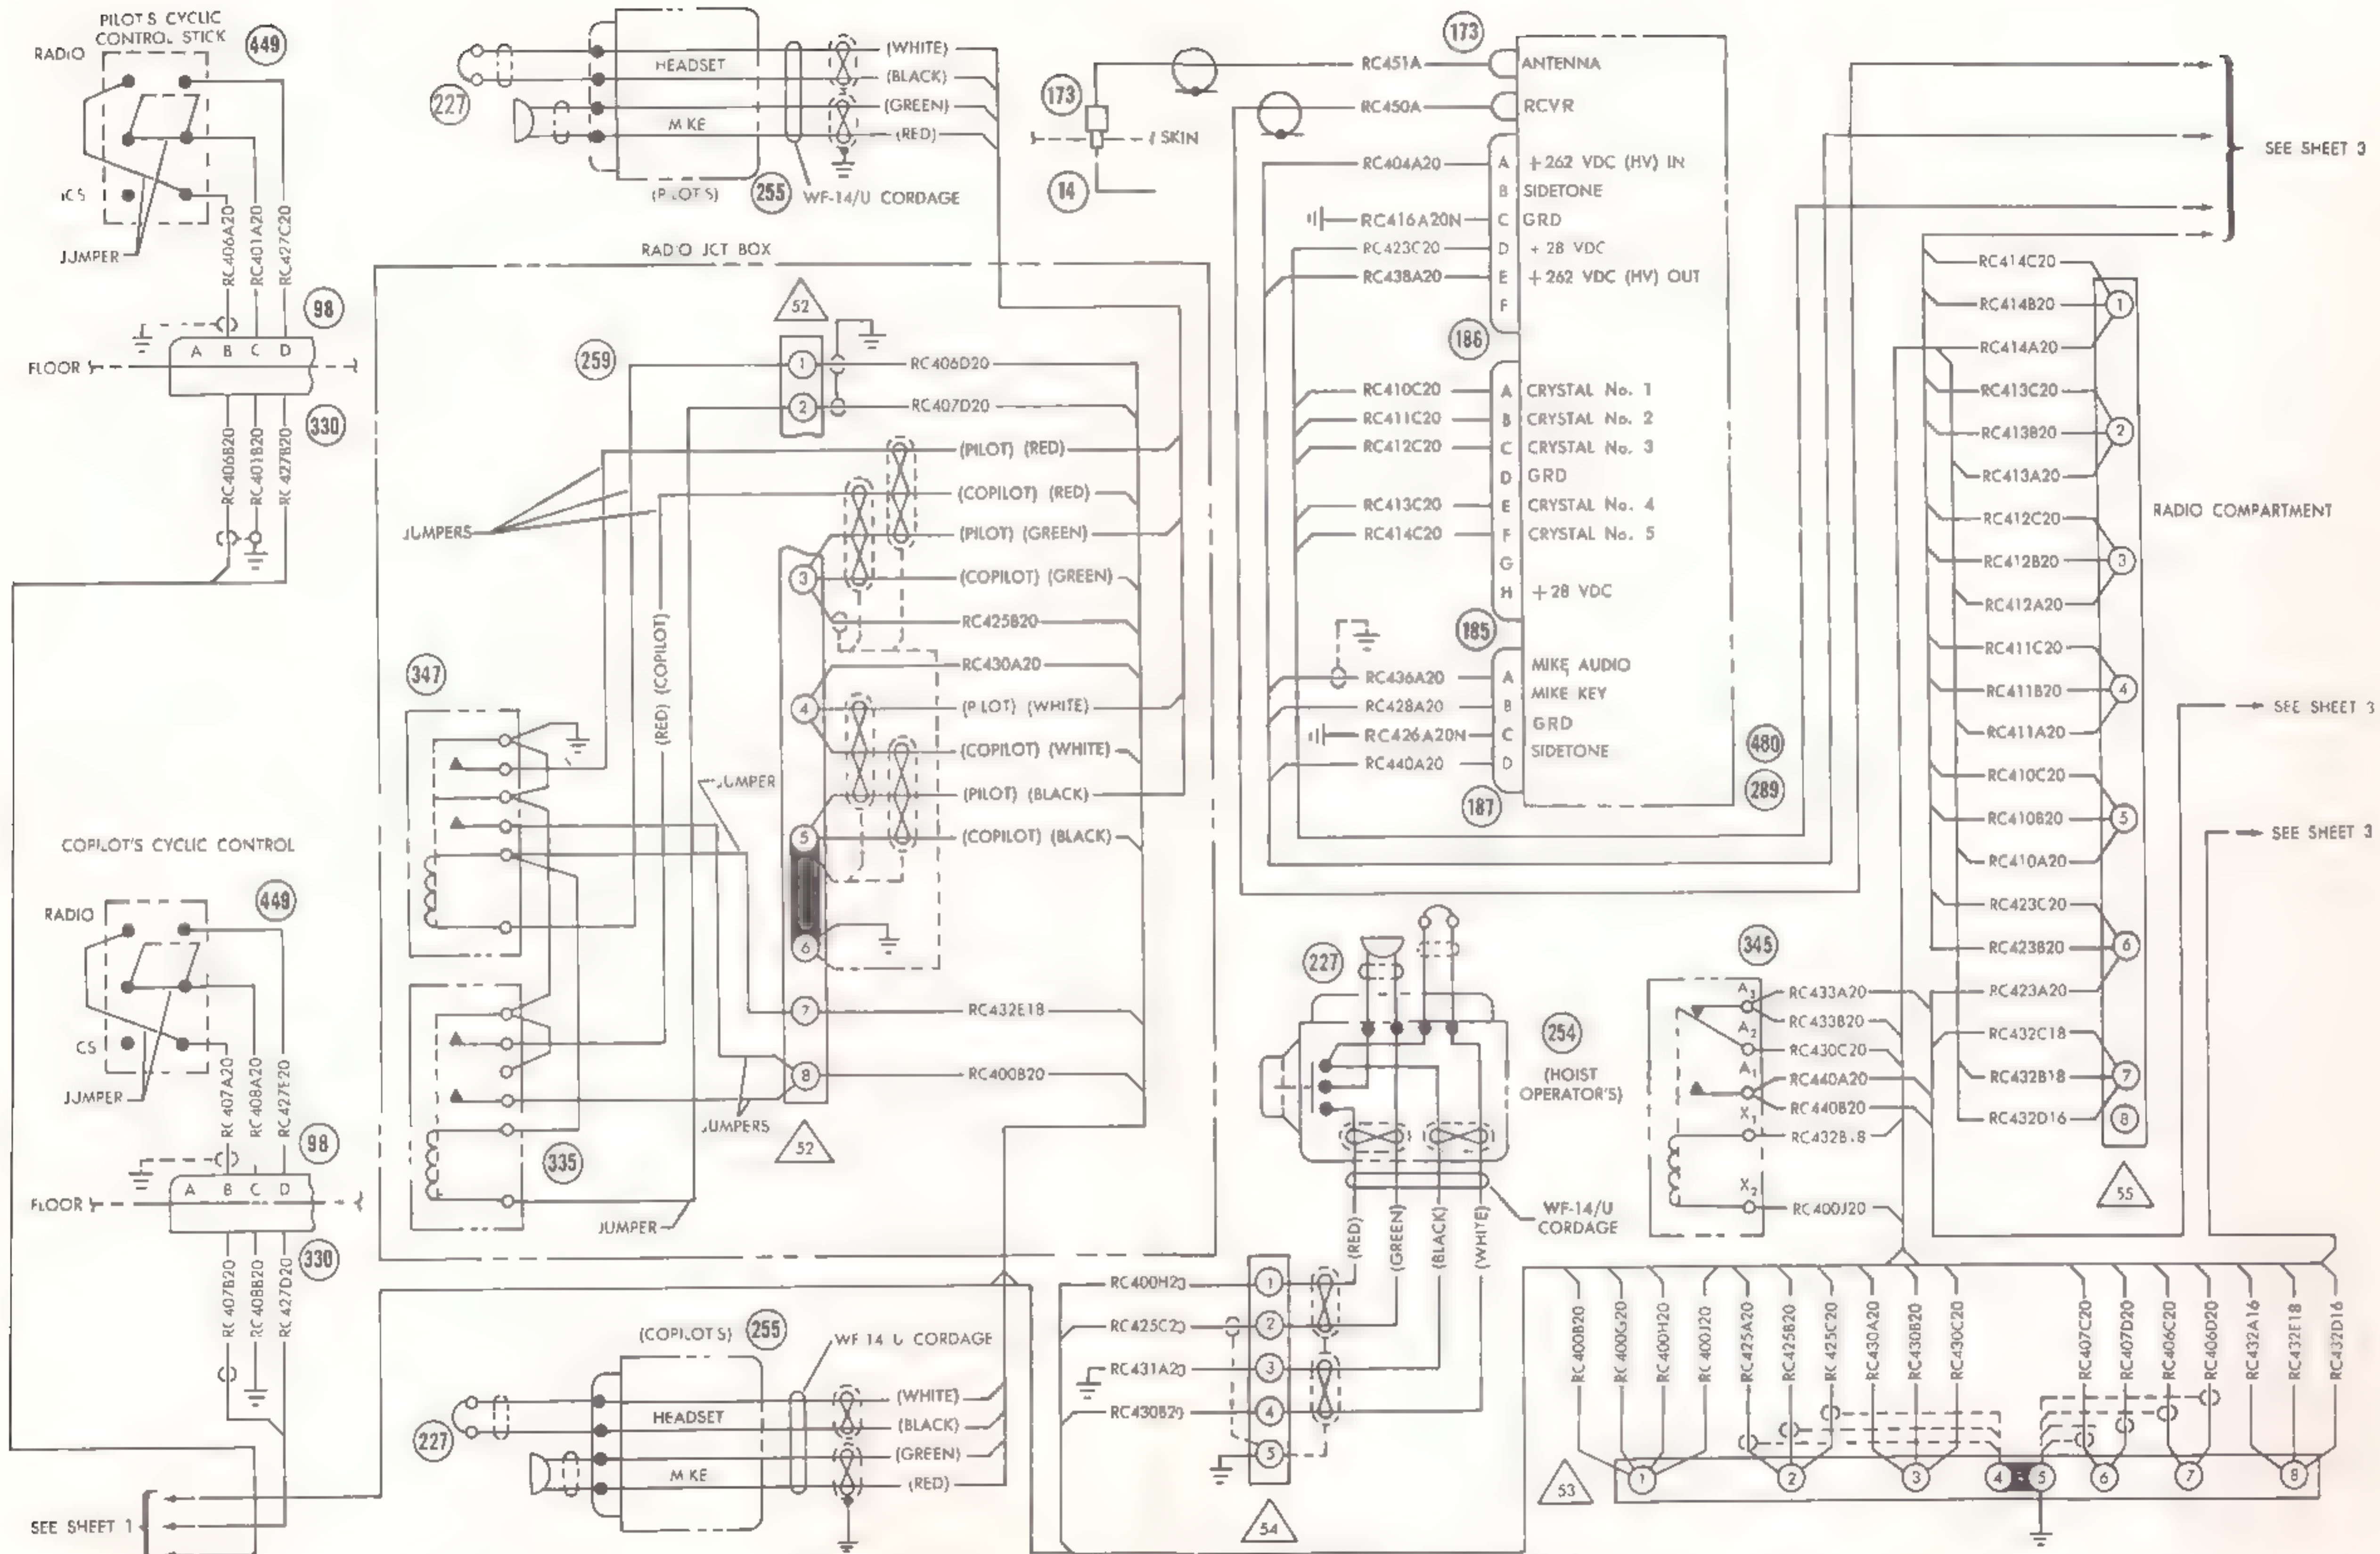 PILOT'S CYCLIC
CONTROL STICK
449
RADIO
ICS
JUMPER
RC406A20
RC401A20
RC427C20
98
A B C D
FLOOR
330
RC406B20
RC401B20
RC427B20
COPILOT'S CYCLIC CONTROL
449
RADIO
CS
JUMPER
RC407A20
RC408A20
RC427E20
98
A B C D
FLOOR
330
RC407B20
RC408B20
RC427D20
SEE SHEET 1
227
HEADSET
MIKE
(PILOTS)
255
WF-14/U CORDAGE
(WHITE)
(BLACK)
(GREEN)
(RED)
RADIO JCT BOX
52
259
1
RC406D20
2
RC407D20
(PILOT) (RED)
(COPILOT) (RED)
JUMPERS
(PILOT) (GREEN)
3
(COPILOT) (GREEN)
RC425B20
(RED) (COPILOT)
RC430A20
347
4
(PILOT) (WHITE)
(COPILOT) (WHITE)
JUMPER
(PILOT) (BLACK)
5
(COPILOT) (BLACK)
6
7
RC432E18
8
RC400B20
JUMPERS
52
335
JUMPER
(COPILOTS)
255
WF 14 U CORDAGE
227
HEADSET
MIKE
(WHITE)
(BLACK)
(GREEN)
(RED)
173
SKIN
14
173
RC451A
ANTENNA
RC450A
RCVR
RC404A20 A +262 VDC (HV) IN
B SIDETONE
RC416A20N C GRD
RC423C20 D +28 VDC
RC438A20 E +262 VDC (HV) OUT
F
186
RC410C20 A CRYSTAL No. 1
RC411C20 B CRYSTAL No. 2
RC412C20 C CRYSTAL No. 3
D GRD
RC413C20 E CRYSTAL No. 4
RC414C20 F CRYSTAL No. 5
G
H +28 VDC
185
RC436A20 A MIKE AUDIO
RC428A20 B MIKE KEY
RC426A20N C GRD
RC440A20 D SIDETONE
187
480
289
SEE SHEET 3
RC414C20
RC414B20
RC414A20
1
RC413C20
RC413B20
RC413A20
2
RC412C20
RC412B20
RC412A20
3
RC411C20
RC411B20
RC411A20
4
RC410C20
RC410B20
RC410A20
5
RC423C20
RC423B20
RC423A20
6
RC432C18
RC432B18
RC432D16
7
8
55
RADIO COMPARTMENT
SEE SHEET 3
SEE SHEET 3
227
254
(HOIST
OPERATOR'S)
WF-14/U
CORDAGE
(RED)
(GREEN)
(BLACK)
(WHITE)
345
A3
RC433A20
RC433B20
A2
RC430C20
A1
RC440A20
RC440B20
X1
RC432B18
X2
RC400J20
RC400H20
1
RC425C20
2
RC431A20
3
RC430B20
4
5
54
RC400B20
RC400G20
RC400H20
RC400J20
RC425A20
RC425B20
RC425C20
RC430A20
RC430B20
RC430C20
RC407C20
RC407D20
RC406C20
RC406D20
RC432A16
RC432E18
RC432D16
53
1 2 3 4 5 6 7 8